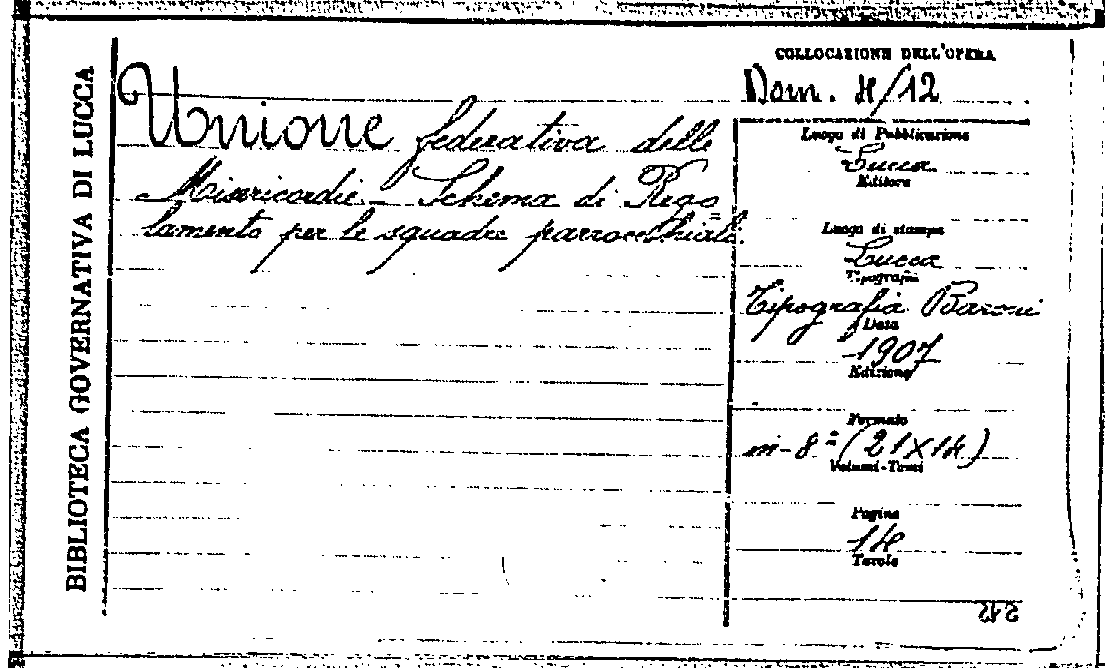 BIBLIOTECA GOVERNATIVA DI LUCCA
Unione federativa delle
Misericordie - Schema di Rego=
lamento per le squadre parrocchiali.
COLLOCAZIONE DELL'OPERA
Dom. H/12
Luogo di Pubblicazione
Lucca
Editore
Luogo di stampa
Lucca
Tipografia
Tipografia Baroni
Data
1907
Edizione
Formato
in-8º (21X14)
Volumi-Tomi
Pagine
14
Tavole
212